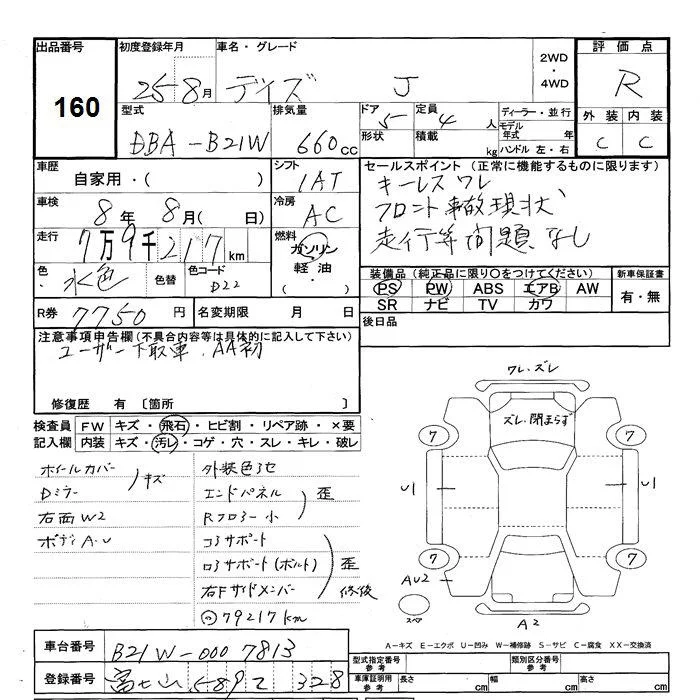 出品番号 初度登録年月 車名・グレード 評価点
160 25-8月 デイズ J 2WD・4WD R
型式 排気量 ドア 5 定員 4人 ディーラー・並行 外装 内装
DBA-B21W 660cc 形状 積載 kg モデル年式 年 ハンドル 左・右 C C
車歴 自家用・( ) シフト 1AT セールスポイント(正常に機能するものに限ります)
車検 8年 8月( 日) 冷房 AC キーレス ワレ
フロント事故現状
走行 7万9千217km 燃料 ガソリン 軽油・ 走行等問題なし
色 水色 色替 色コード D22 装備品(純正品に限り○をつけてください) 新車保証書
PS PW ABS エアB AW 有・無
SR ナビ TV カワ
R券 7750円 名変期限 月 日 後日品
注意事項申告欄(不具合内容等は具体的に記入して下さい)
ユーザー下取車.AA初
修復歴 有〔箇所 〕
検査員 FW キズ・飛石・ヒビ割・リペア跡・×要
記入欄 内装 キズ・汚レ・コゲ・穴・スレ・キレ・破レ
ホイールカバー キズ
Dミラー
右面W2
ボディA.U
外装色3セ
エンドパネル 歪
Rフロアー小
コアサポート
ロアサポート(ボルト) 歪
右Fサイドメンバー 修後
79217km
ワレ・ズレ
ズレ・閉まらず
7 7
U1 U1
7 7
AU2
スペア
A2
A-キズ E-エクボ U-凹み W-補修跡 S-サビ C-腐食 XX-交換済
車台番号 B21W-0007813
登録番号 富士山 589 328
型式指定番号 参考 類別区分番号 参考
車庫証明用 参考 長さ cm 幅 cm 高さ cm